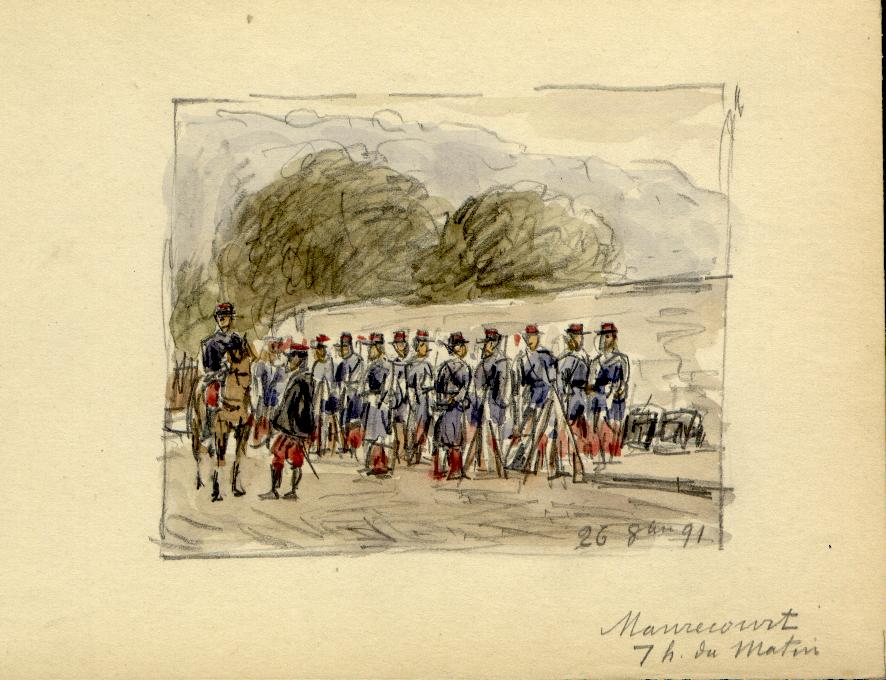 26 8bre 91
Maurecourt
7 h. du Matin